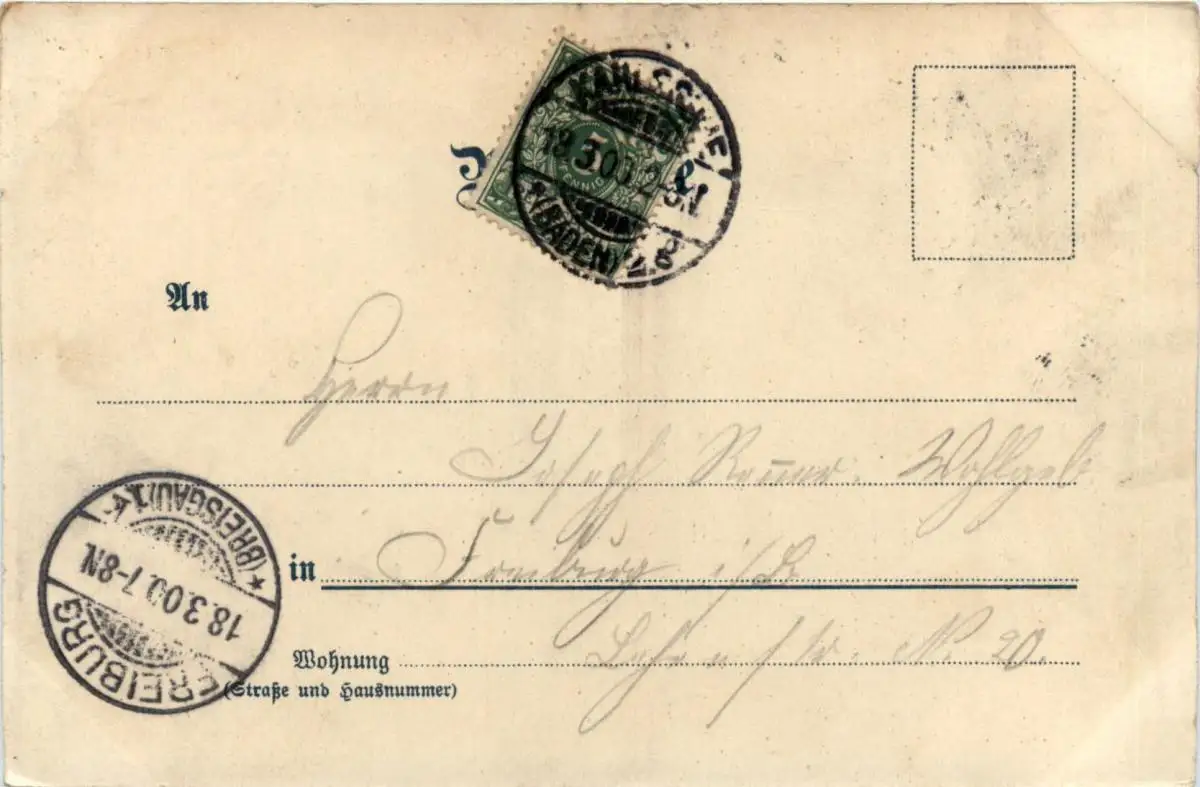 KARLSRUHE
18.3.00. 2-3N.
5
PFENNIG
*(BADEN) 2.
An
Herrn
Joseph
in Freiburg i/B.
Wohnung N. 20.
(Straße und Hausnummer)
*(BREISGAU) 1.
18.3.00. 7-8N.
FREIBURG